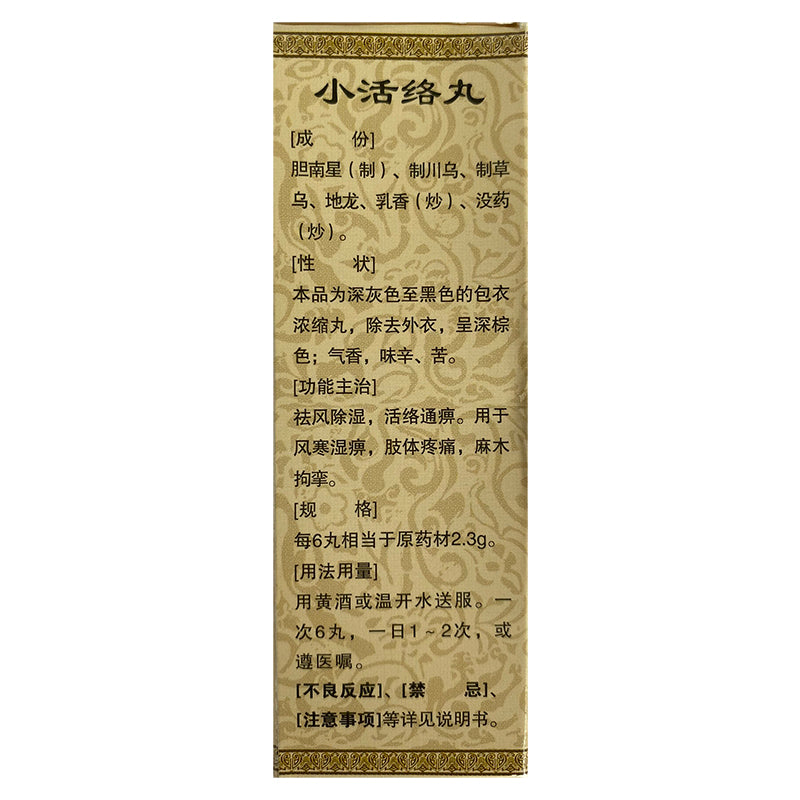 小活络丸
[成 份]
胆南星（制）、制川乌、制草
乌、地龙、乳香（炒）、没药
（炒）。
[性 状]
本品为深灰色至黑色的包衣
浓缩丸，除去外衣，呈深棕
色；气香，味辛、苦。
[功能主治]
祛风除湿，活络通痹。用于
风寒湿痹，肢体疼痛，麻木
拘挛。
[规 格]
每6丸相当于原药材2.3g。
[用法用量]
用黄酒或温开水送服。一
次6丸，一日1～2次，或
遵医嘱。
[不良反应]、[禁 忌]、
[注意事项]等详见说明书。